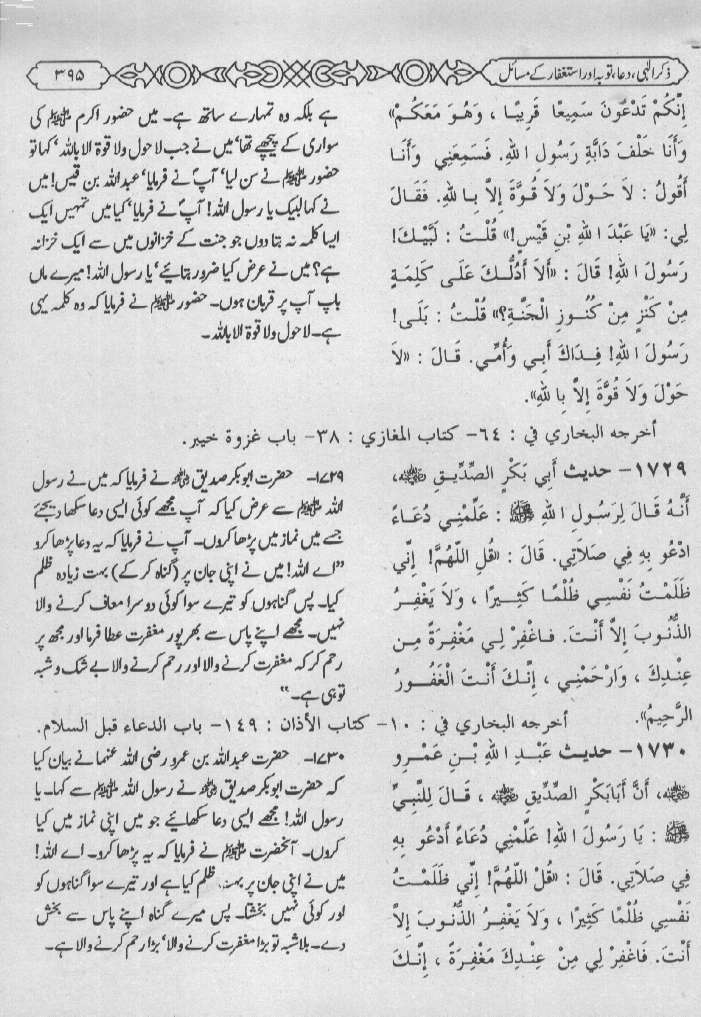 ذکر الٰہی، دعا، توبہ اور استغفار کے مسائل
۳۹۵
إِنَّكُمْ تَدْعُونَ سَمِيعًا قَرِيبًا ، وَهُوَ مَعَكُمْ»
وَأَنَا خَلْفَ دَابَّةِ رَسُولِ اللهِ. فَسَمِعَنِي وَأَنَا
أَقُولُ : لاَ حَوْلَ وَلاَ قُوَّةَ إِلاَّ بِاللهِ. فَقَالَ
لِي: «يَا عَبْدَ اللهِ بْنِ قَيْسٍ!» قُلْتُ : لَبَّيْكَ!
رَسُولَ اللهِ! قَالَ : «أَلاَ أَدُلُّكَ عَلَى كَلِمَةٍ
مِنْ كَنْزٍ مِنْ كُنُوزِ الْجَنَّةِ؟» قُلْتُ : بَلَى!
رَسُولَ اللهِ! فِدَاكَ أَبِي وَأُمِّي. قَالَ : «لاَ
حَوْلَ وَلاَ قُوَّةَ إِلاَّ بِاللهِ».
ہے بلکہ وہ تمہارے ساتھ ہے۔ میں حضور اکرم ﷺ کی
سواری کے پیچھے تھا‘ میں نے جب لا حول ولا قوۃ الا باللہ‘ کہا تو
حضور ﷺ نے سن لیا‘ آپؐ نے فرمایا‘ عبداللہ بن قیس! میں
نے کہا لبیک یا رسول اللہ! آپؐ نے فرمایا‘ کیا میں تمہیں ایک
ایسا کلمہ نہ بتا دوں جو جنت کے خزانوں میں سے ایک خزانہ
ہے؟ میں نے عرض کیا ضرور بتائیے‘ یا رسول اللہ! میرے ماں
باپ آپ پر قربان ہوں۔ حضور ﷺ نے فرمایا کہ وہ کلمہ یہی
ہے۔ لا حول ولا قوۃ الا باللہ۔
أخرجه البخاري في : ٦٤- كتاب المغازي : ٣٨- باب غزوة خيبر.
١٧٢٩- حديث أَبِي بَكْرٍ الصِّدِّيقِ ؓ،
أَنَّهُ قَالَ لِرَسُولِ اللهِ ﷺ : عَلِّمْنِي دُعَاءً
ادْعُو بِهِ فِي صَلاَتِي. قَالَ : «قُلِ اللّٰهُمَّ! إِنِّي
ظَلَمْتُ نَفْسِي ظُلْمًا كَثِيرًا ، وَلاَ يَغْفِرُ
الذُّنُوبَ إِلاَّ أَنْتَ. فَاغْفِرْ لِي مَغْفِرَةً مِن
عِنْدِكَ ، وَارْحَمْنِي ، إِنَّكَ أَنْتَ الْغَفُورُ
الرَّحِيمُ».
۱۷۲۹۔ حضرت ابو بکر صدیق ؓ نے فرمایا کہ میں نے رسول
اللہ ﷺ سے عرض کیا کہ آپ مجھے کوئی ایسی دعا سکھا دیجئے
جسے میں نماز میں پڑھا کروں۔ آپ نے فرمایا کہ یہ دعا پڑھا کرو
”اے اللہ! میں نے اپنی جان پر (گناہ کر کے) بہت زیادہ ظلم
کیا۔ پس گناہوں کو تیرے سوا کوئی دوسرا معاف کرنے والا
نہیں۔ مجھے اپنے پاس سے بھرپور مغفرت عطا فرما اور مجھ پر
رحم کر کہ مغفرت کرنے والا اور رحم کرنے والا بے شک و شبہ
تو ہی ہے۔“
أخرجه البخاري في : ١٠- كتاب الأذان : ١٤٩- باب الدعاء قبل السلام.
١٧٣٠- حديث عَبْدِ اللهِ بْنِ عَمْرٍو
ؓ، أَنَّ أَبَابَكْرٍ الصِّدِّيقِ ؓ ، قَالَ لِلنَّبِيِّ
ﷺ : يَا رَسُولَ اللهِ! عَلِّمْنِي دُعَاءً أَدْعُو بِهِ
فِي صَلاَتِي. قَالَ : «قُلْ اللّٰهُمَّ! إِنِّي ظَلَمْتُ
نَفْسِي ظُلْمًا كَثِيرًا ، وَلاَ يَغْفِرُ الذُّنُوبَ إِلاَّ
أَنْتَ. فَاغْفِرْ لِي مِنْ عِنْدِكَ مَغْفِرَةً ، إِنَّكَ
۱۷۳۰۔ حضرت عبداللہ بن عمرو رضی اللہ عنہما نے بیان کیا
کہ حضرت ابو بکر صدیق ؓ نے رسول اللہ ﷺ سے کہا۔ یا
رسول اللہ! مجھے ایسی دعا سکھائیے جو میں اپنی نماز میں کیا
کروں۔ آنحضرت ﷺ نے فرمایا کہ یہ پڑھا کرو۔ اے اللہ!
میں نے اپنی جان پر بہت ظلم کیا ہے اور تیرے سوا گناہوں کو
اور کوئی نہیں بخشتا۔ پس میرے گناہ اپنے پاس سے بخش
دے۔ بلاشبہ تو بڑا مغفرت کرنے والا‘ بڑا رحم کرنے والا ہے۔